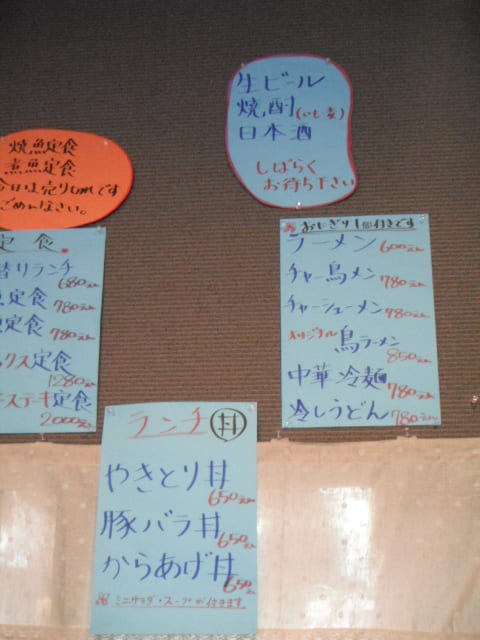 生ビール
焼酎(いも 麦)
日本酒
しばらく
お待ち下さい
焼魚定食
煮魚定食
今日は売り切れです
ごめんなさい。
定食
替りランチ
680えん
魚定食
780えん
魚定食
780えん
ックス定食
1280えん
ステキ定食
2000えん
おにぎり1個付きです
ラーメン 600えん
チャー鳥メン 780えん
チャーシューメン 780えん
オリジナル鳥ラーメン
850えん
中華冷麺 780えん
冷しうどん 780えん
ランチ丼
やきとり丼
650えん
豚バラ丼
650えん
からあげ丼
650えん
ミニサラダ・スープが付きます